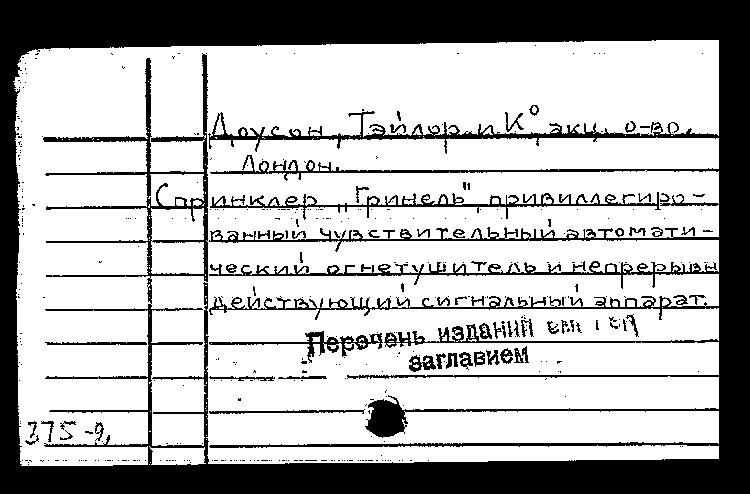 Доусон, Тэйлор и К⁰, акц. о-во,
Лондон.
Спринклер „Гринель", привиллегиро-
ванный чувствительный автомати-
ческий огнетушитель и непрерывн
действующий сигнальный аппарат.
Перечень изданий см
заглавием
375-9,